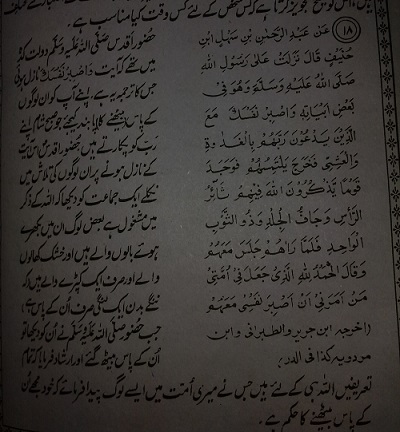 تجویز کرتا ہے کہ کس شخص کے لئے کس وقت کیا مناسب ہے۔
(۱۸) عَنْ عَبْدِ الرَّحْمٰنِ بْنِ سَهْلِ ابْنِ
حُنَيْفٍ قَالَ نَزَلَتْ عَلٰى رَسُوْلِ اللهِ
صَلَّى اللهُ عَلَيْهِ وَسَلَّمَ وَهُوَ فِيْ
بَعْضِ اَبْيَاتِهٖ وَاصْبِرْ نَفْسَكَ مَعَ
الَّذِيْنَ يَدْعُوْنَ رَبَّهُمْ بِالْغَدٰوةِ
وَالْعَشِيِّ فَخَرَجَ يَلْتَمِسُهُمْ فَوَجَدَ
قَوْمًا يَذْكُرُوْنَ اللهَ فِيْهِمْ ثَائِرُ
الرَّأْسِ وَجَافُّ الْجِلْدِ وَذُو الثَّوْبِ
الْوَاحِدِ فَلَمَّا رَاٰهُمْ جَلَسَ مَعَهُمْ
وَقَالَ الْحَمْدُ لِلّٰهِ الَّذِيْ جَعَلَ فِيْ اُمَّتِيْ
مَنْ اَمَرَنِيْ اَنْ اَصْبِرَ نَفْسِيْ مَعَهُمْ
(اخرجه ابن جرير والطبراني وابن
مردويه كذا في الدر)
حضورِ اقدس صلّی اللہ علیہ وسلّم دولت کدہ
میں تھے کہ آیت وَاصْبِرْ نَفْسَكَ نازل ہوئی
جس کا ترجمہ یہ ہے۔ اپنے آپ کو ان لوگوں
کے پاس بیٹھنے کا پابند کیجئے جو صبح شام اپنے
رب کو پکارتے ہیں حضورِ اقدس اس آیت
کے نازل ہونے پر ان لوگوں کی تلاش میں
نکلے ایک جماعت کو دیکھا کہ اللہ کے ذکر
میں مشغول ہے بعض لوگ ان میں بکھرے
ہوئے بالوں والے ہیں اور خشک کھالوں
والے اور صرف ایک کپڑے والے ہیں (کہ
ننگے بدن ایک لنگی صرف ان کے پاس ہے)
جب حضور صلّی اللہ علیہ وسلّم نے ان کو دیکھا تو
ان کے پاس بیٹھ گئے اور ارشاد فرمایا کہ تمام
تعریفیں اللہ ہی کے لئے ہیں جس نے میری اُمت میں ایسے لوگ پیدا فرمائے کہ خود مجھے اُن
کے پاس بیٹھنے کا حکم ہے۔